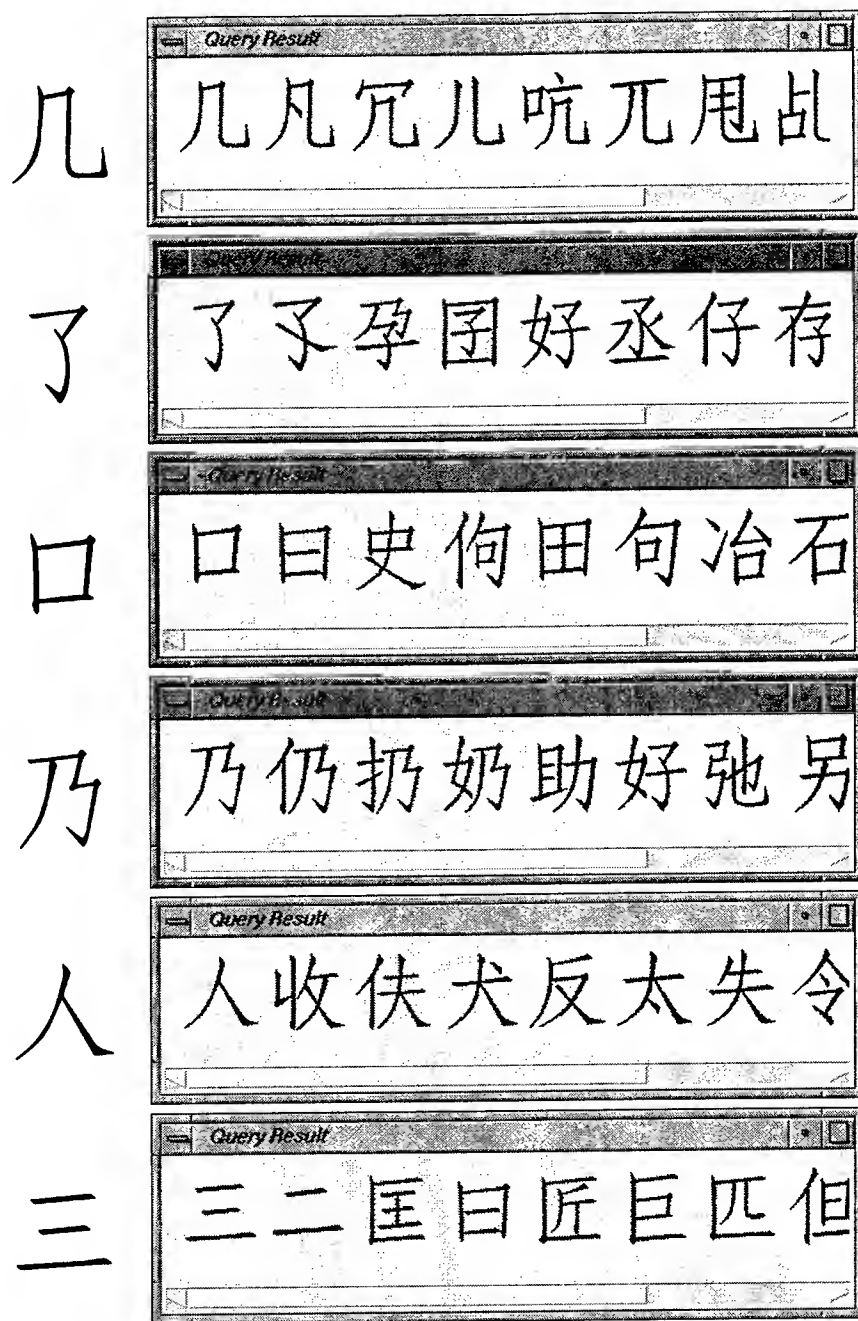 Query Result
几 几凡冗儿吭兀甩乩
Query Result
了 了孓孕囝好丞仔存
Query Result
口 口曰史佝田句冶石
Query Result
乃 乃仍扔奶助好弛另
Query Result
人 人收伕犬反太失令
Query Result
三 三二匡曰匠巨匹但